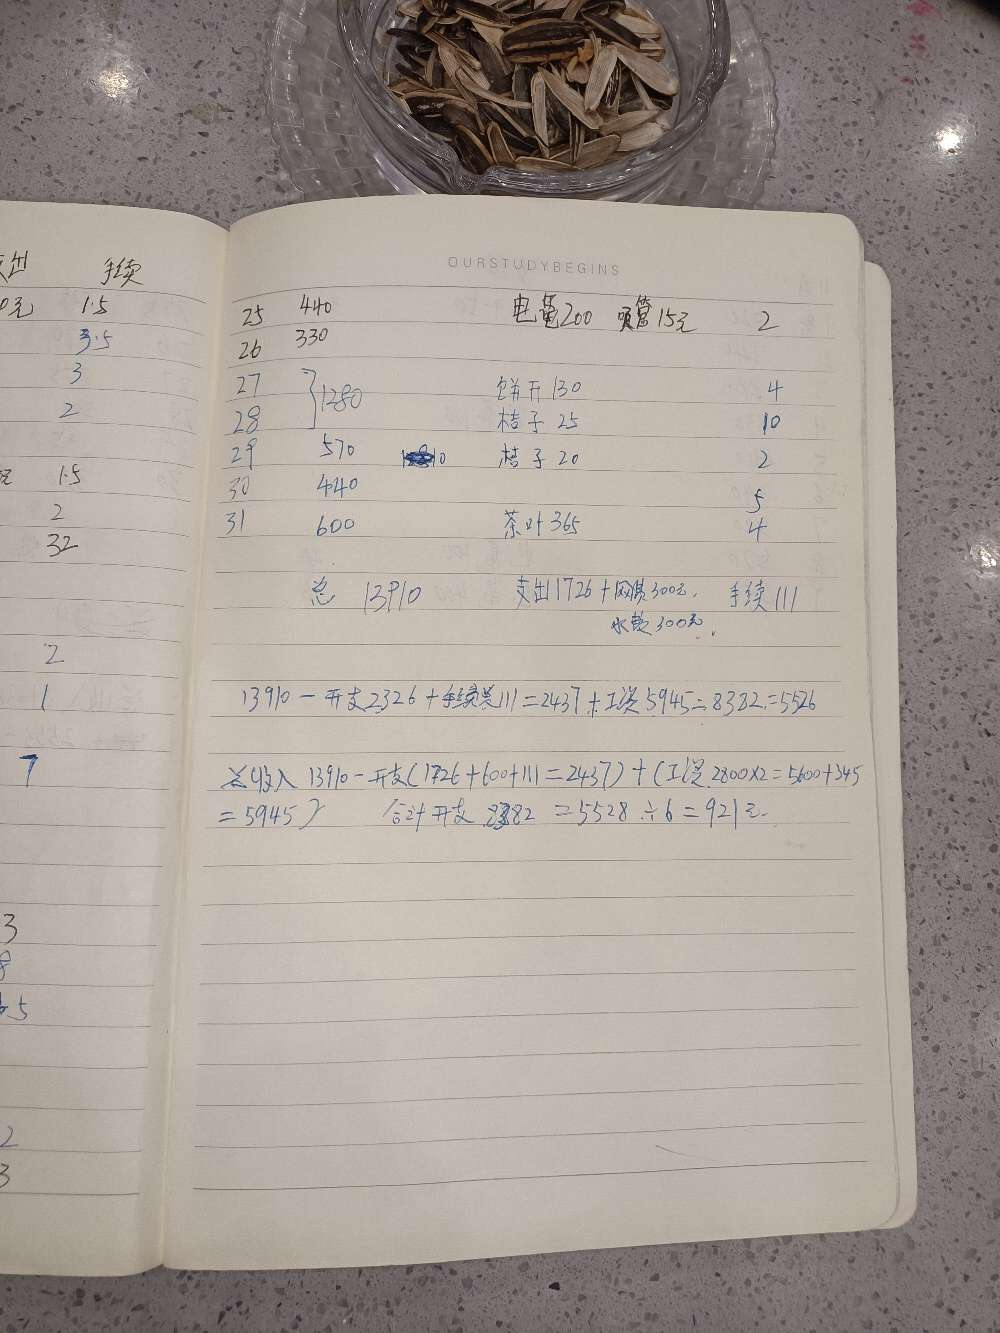 支出 手续
0元 1.5
3.5
3
2
元 1.5
2
32
2
1
7
3
8
5
2
3
OURSTUDYBEGINS
25 440 电费200 吸管15元 2
26 330
27 1280 饼干130 4
28 桔子 25 10
29 570 桔子 20 2
30 440 5
31 600 茶叶365 4
总 13910 支出1726+网费300元, 手续111
水费300元,
13910-开支2326+手续费111=2437+工资5945=8382=5526
总收入 13910-开支(1726+600+111=2437)+(工资2800×2=5600+345
=5945) 合计开支8382 =5528÷6=921元